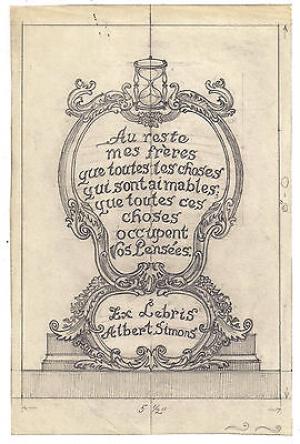 Au reste
mes frères
que toutes les choses
qui sont aimables,
que toutes ces
choses
occupent
Vos Pensées.
Ex Lebris
Albert Simons
5 1/2"